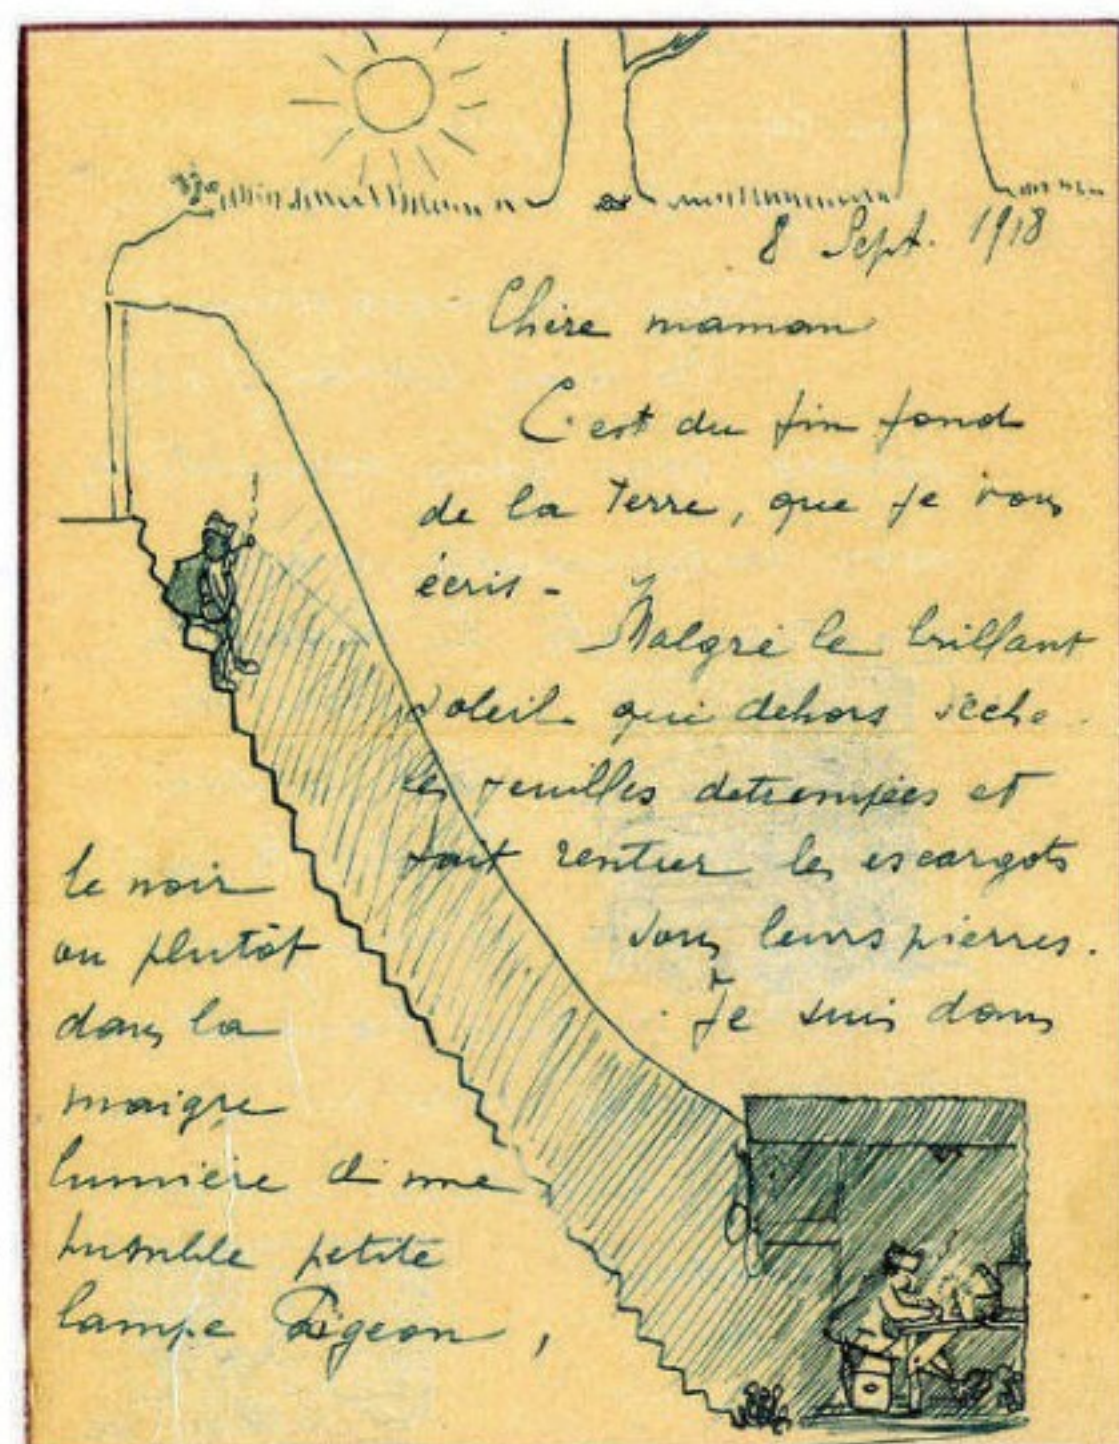 8 Sept. 1918
Chère maman
C'est du fin fond
de la Terre, que je vous
écris -
Malgré le brillant
soleil qui dehors sèche
les feuilles detrempées et
fait rentrer les escargots
sous leurs pierres.
Je suis dans
le noir
ou plutôt
dans la
maigre
lumière d'une
humble petite
lampe Pigeon,